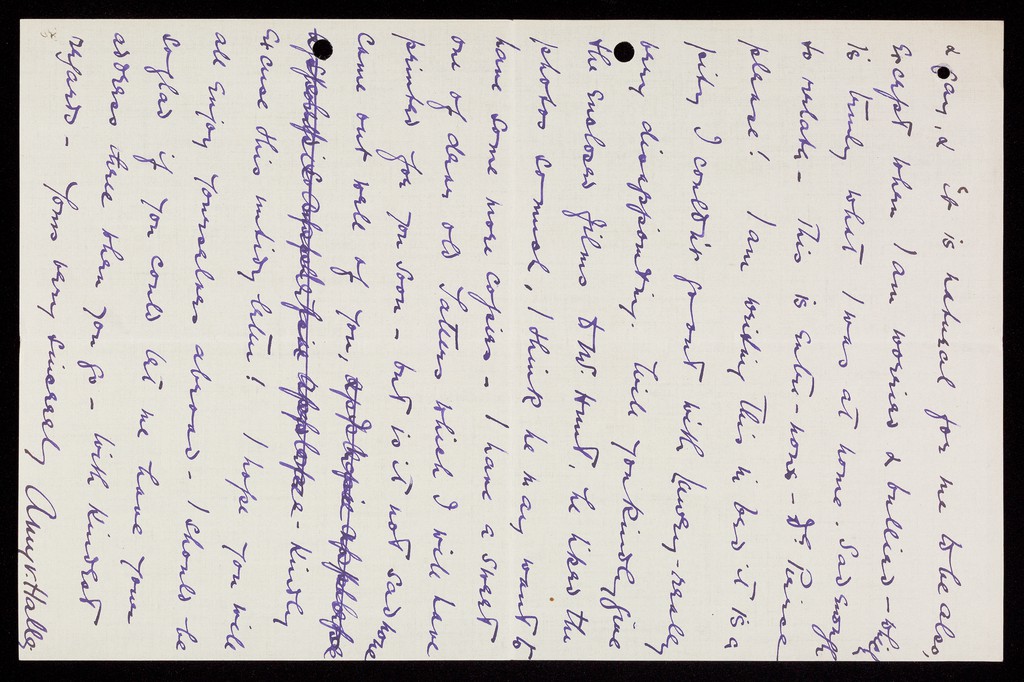 & gay, & it is natural for me to be also,
except when I am worried & bullied - which
is truly what I was at home. Sad enough
to relate - This is entre-nous - Dr. Peirce
please! I am writing this in bed it is a
pity I couldn't go out with - really
very disappointing. Will you kindly give
the enclosed films to Mr. Hunt, he liked the
photos so much, I think he may want to
have some more copies - I have a sweet
one of dear old which I will have
printed for you soon - but is it not sad none
came out well of you, - Kindly
Excuse this untidy letter! I hope you will
all enjoy yourselves abroad - I should be
so glad if you could let me have your
address there when you go - with kindest
regards - Yours very sincerely Amy v. Halle